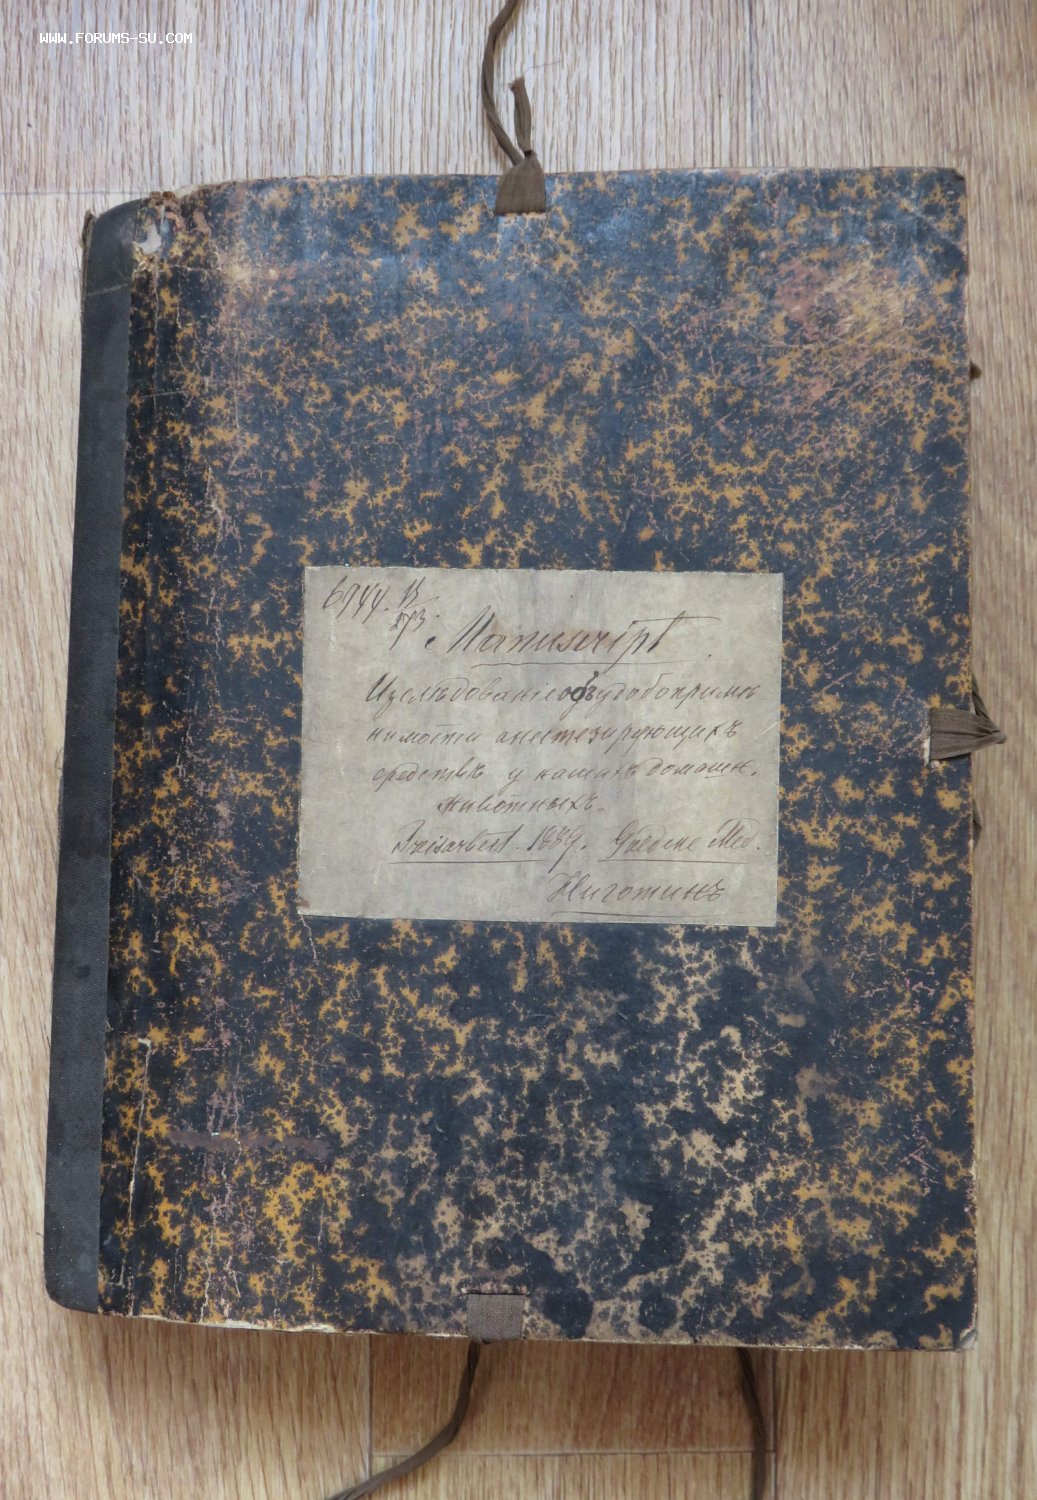 WWW.FORUMS-SU.COM
6944.
Manuscript
Изслѣдованіе объ удобопримѣ
нимости анестезирующихъ
средствъ у нашихъ домашн.
животныхъ.
Preisarbeit 1889. Goldene Med.
Ниготинъ